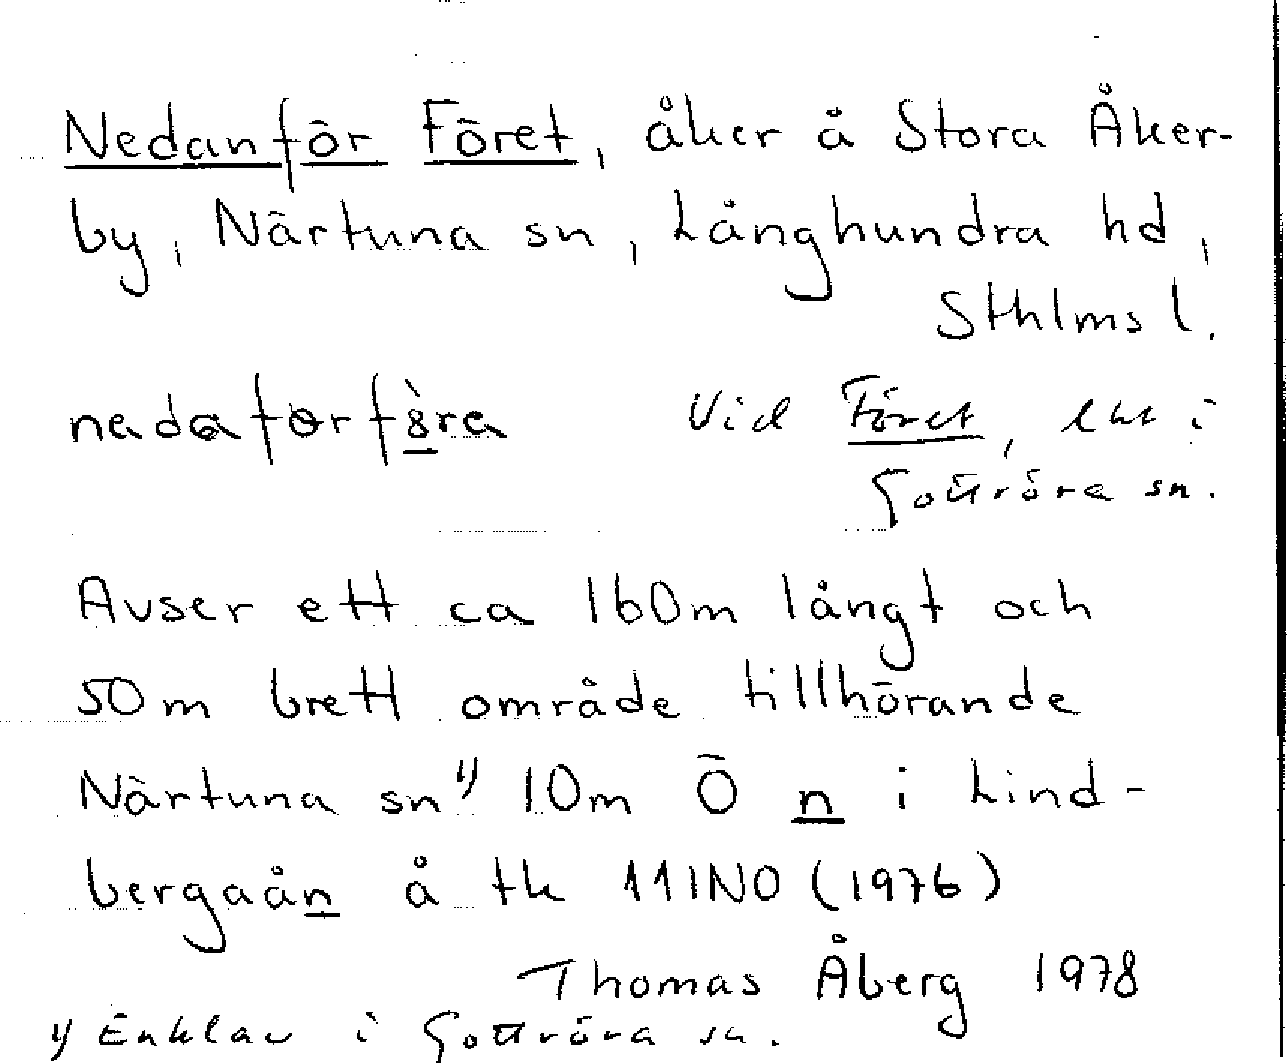 Nedanför Föret, åker å Stora Åker-
by, Närtuna sn, Långhundra hd,
Sthlms l.
Vid Föret, i
Gottröra sn.
Avser ett ca 160m långt och
50m brett område tillhörande
Närtuna sn 1) 10m Ö n i Lind-
bergaån å tk 11INO (1976)
Thomas Åberg 1978
1) Enklav i Gottröra sn.